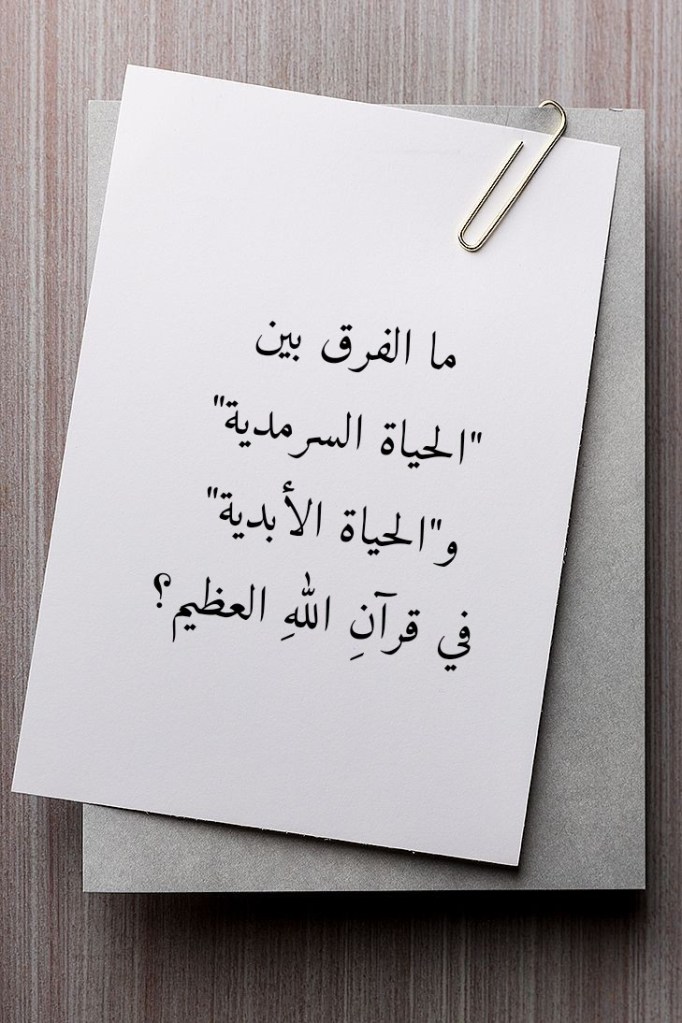 ما الفرق بين
"الحياة السرمدية"
و"الحياة الأبدية"
في قرآنِ اللهِ العظيم؟